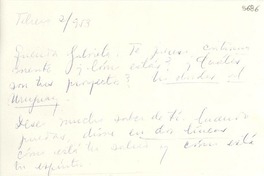 Febrero 2/953
Querida Gabriela: Te pienso continua
mente ¿Cómo estás? ¿Cuáles
son tus proyectos? No olvides el
Uruguay.
Deseo mucho saber de ti. Cuando
puedas, dime en dos líneas
cómo está tu salud y cómo está
tu espíritu.